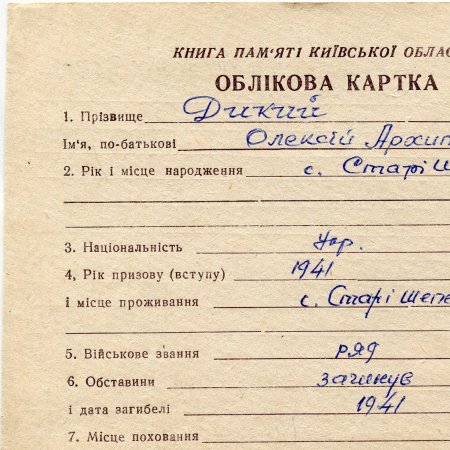 КНИГА ПАМ'ЯТІ КИЇВСЬКОЇ ОБЛАС
ОБЛІКОВА КАРТКА
1. Прізвище Дикий
Ім'я, по-батькові Олексій Архип
2. Рік і місце народження с. Старі Ш
3. Національність укр.
4, Рік призову (вступу) 1941
і місце проживання с. Старі Шепе
5. Військове звання ряд
6. Обставини загинув
і дата загибелі 1941
7. Місце поховання